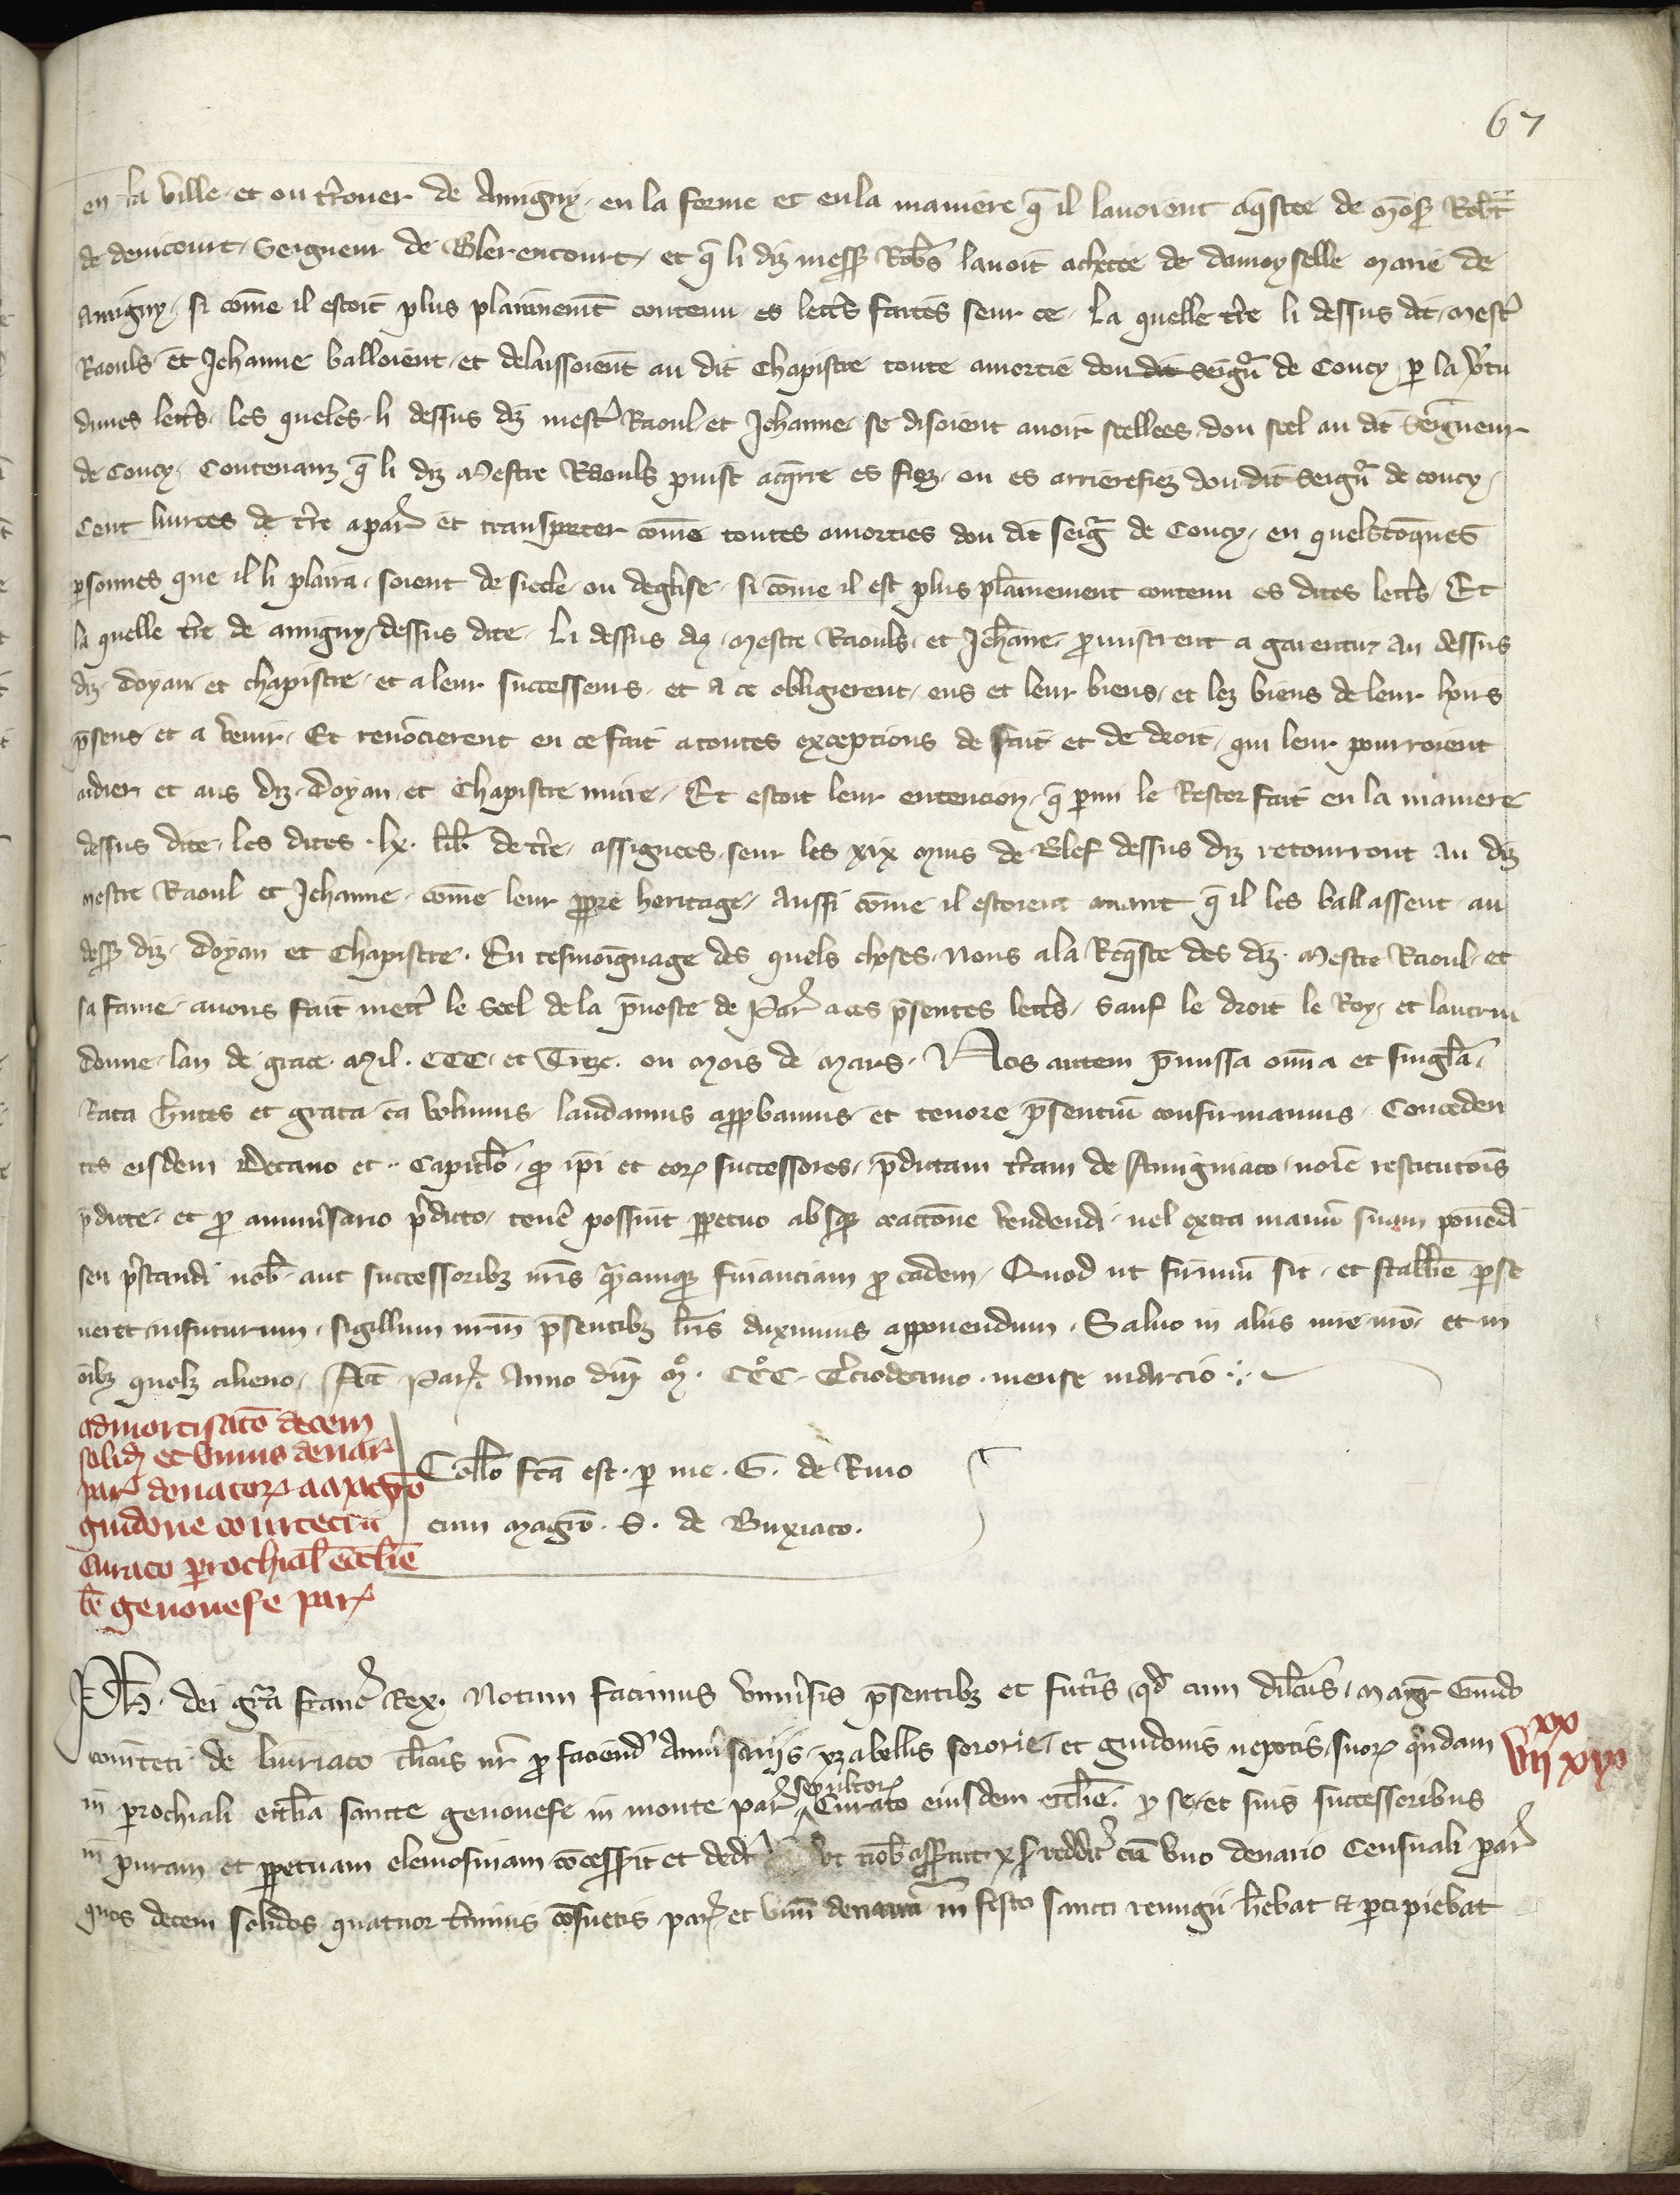 67
en la ville et ou t̾rouer de Amigny en la forme et en la maniere q̄ il lauoient aq̄stee de mōsr Rob̄t
de denicourt seigneur de Blerencourt et q̄ li diz messr Rob̄s lauoit achetee de damoyselle marie de
Amigny si com̄e il estoit plus plainnem̄t contenu es lett̄s faites seur ce La quelle t̄re li dessus dit mest̄
Raouls et Jehanne balloient et delaissoient au dit Chapistre toute amortie dou dit seign̄ de Coucy p̱ la v̾tu
dunes lett̄s les queles li dessus diz mest̄ Raoul et Jehanne se disoient auoir seellees dou seel au dit Seigneur
de Coucy Contenanz q̄ li diz Mestre Raouls puist acq̄rre es fiez ou es arrierefiez dou dit seign̄ de coucy
Cent liurees de t̄re a par̄ et transporter com̄e toutes amorties dou dit seiḡ de Coucy en quelscōques
p̱sonnes que il li plaira soient de siecle ou deglise si com̄e il est plus pl̄ainement contenu es dites lett̄s Et
la quelle t̄re de amigny dessus dite Li dessus diz Mestre Raouls et Jeh̄anne p̱mistrent a garentir au dessus
diz doyan et chapistre et a leur successeurs et a ce obligierent eus et leur biens et lez biens de leur hoirs
p̄sens et a venir Et renōcierent en ce fait a toutes exceptions de fait et de droit qui leur pourroient
aidier et aus diz Doyan et Chapistre nuire Et estoit leur entencion q̄ p̱mi le Restor fait en la maniere
dessus dite les dites .lx. lib̄ de t̄re assignees seur les xix muis de Blef dessus diz retourront au diz
mestre Raoul et Jehanne com̄e leur pp̱re heritage Aussi com̄e il estoient auant q̄ il les ballassent au
dessr diz Doyan et Chapistre. En tesmoīgnage des quels choses Nous a la Req̄ste des diz Mestre Raoul et
sa fame auons fait mett̄ le Seel de la p̄uoste de Par̄ a ces p̄sentes lett̄s Sauf le droit le Roy et lautrui
donne lan de grace Mil. CCC. et Treze. ou Mois de Mars. Nos autem p̄missa om̄ia et singl̄a
Rata h̄ntes et grata ea volumus laudamus app̱bamus et tenore p̄sentiū confirmamus Conceden
tes eisdem Decano et .. Capitl̄o q̱ ip̄i et eor̄ successores p̄dictam t̄ram de Amigniaco noīe restitutōis
p̄dicte et p̱ anniu̾sario p̾dicto ten̄e possint pp̱etuo absq̱ coactione vendendi uel extra manū suam ponēdi
seu p̾standi nob̄ aut successoribꝫ nr̄is q̄mcumqꝫ financiam p̱ eadem Quod ut firmū sit et stabil̄e p̱se
ueret in futurum sigillum nr̄m p̄sentibꝫ lr̄is duximus apponendum. Saluo in aliis iure nr̄o et in
oībꝫ quolꝫ alieno. Act̄ Par̄. Anno dn̄i M°. CCC°. T̾ciodecimo mense marcio
admortisatō decem
solid̄ et vnius denar̄
par̄ donator̄ a magr̄o
guidone comtecti
Curato p̱rochial̄ eccl̄ie
b̄e genouefe par̄
Coll̄o fc̄a est. p̱ me. G. de Riuo
cum magr̄o. S. de Buxiaco.
Ph̄. dei gr̄a franc̄ Rex. Notum facimus vniu̾sis p̄sentibꝫ et fut̄is qd̄ cum dil̄cus magr̄ Guido
comtecti de liuriaco cl̄icus nr̄ p̱ faciend̄ Anniu̾sariis yzabellis sororie et guidonis nepotis suor̄ q̄ndam
in p̱rochiali eccl̄ia sancte genouefe in monte par̄ sepultor̄ Curato eiusdem eccl̄ie. p̱ se et suis successoribus
in puram et pp̱etuam elemosinam cōcesserit et ded̾it vt nob̄ asseruit x s̄ reddit̄ cū vno denario Censuali par̄
quos decem solidos quatuor t̄minis cōsuetis par̄ et vnū denariū in festo sancti remigii h̄ebat et p̱cipiebat
xx
vii xvi